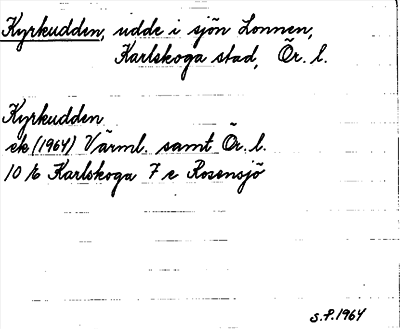 Kyrkudden, udde i sjön Lonnen,
Karlskoga stad, Ör. l.
Kyrkudden
ek (1964) Värml. samt Ör. l.
10 Karlskoga 7 e Rosensjö
S.P. 1964